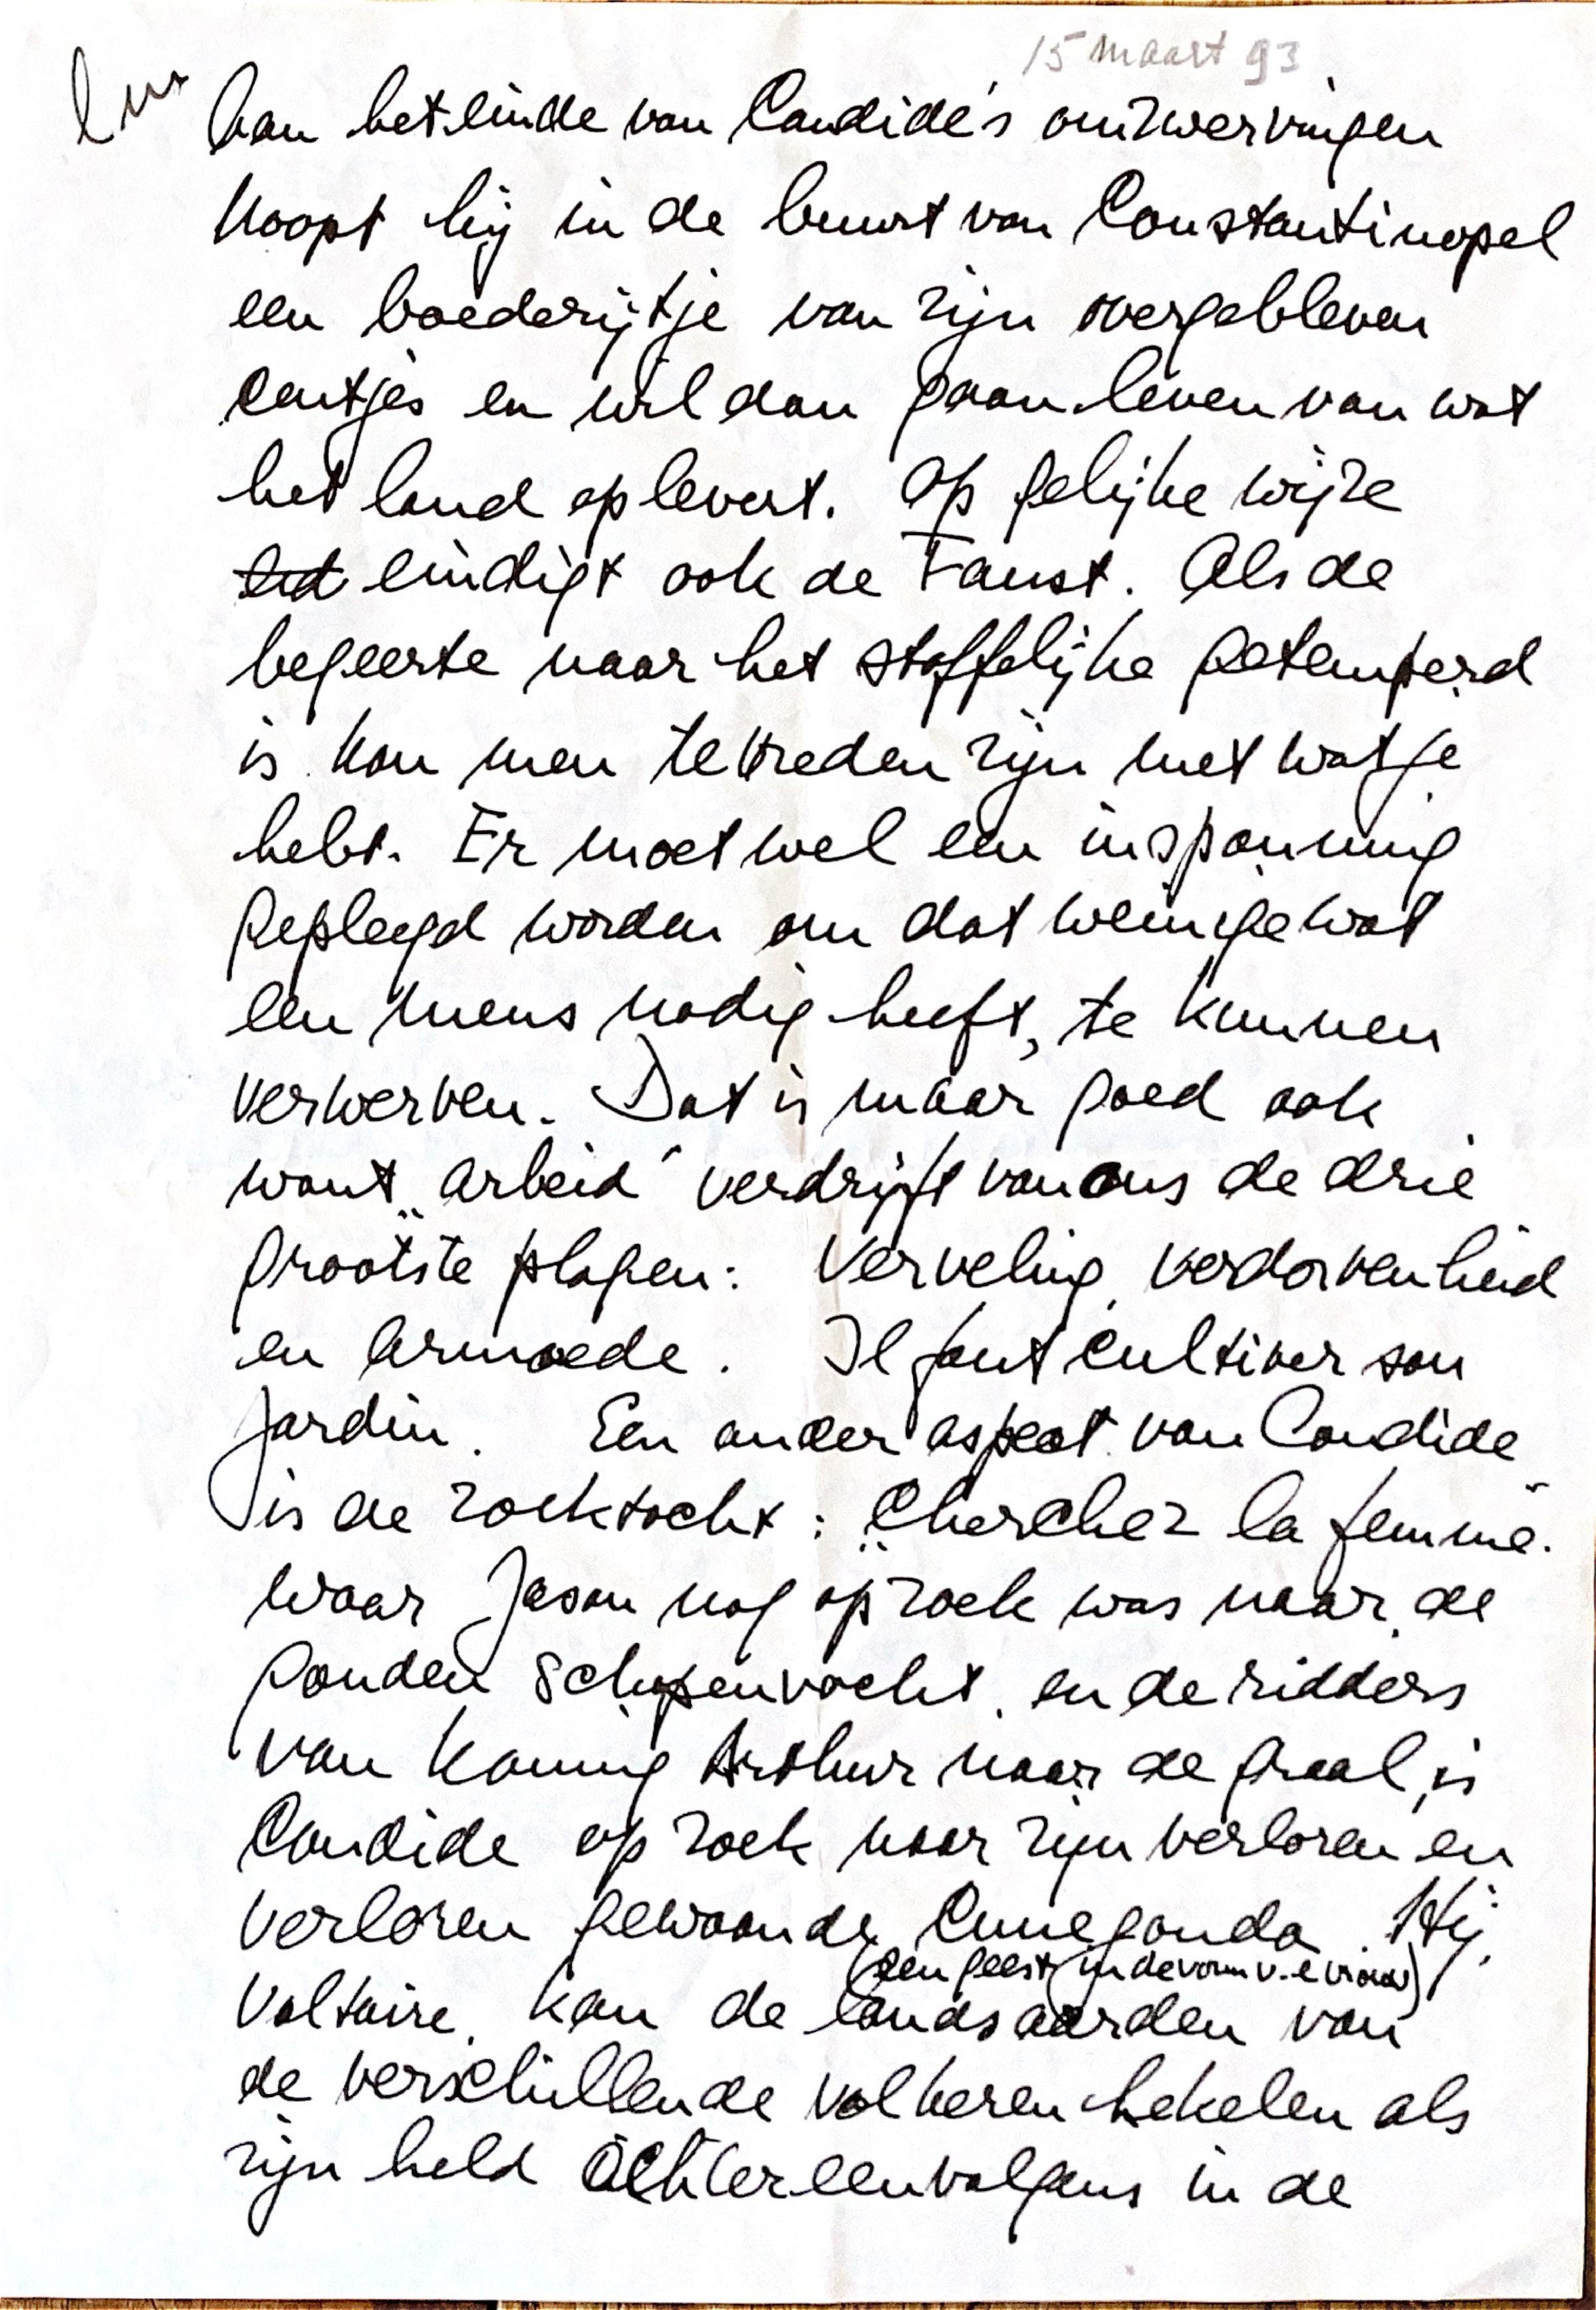 15 maart 93
Aan het einde van Candide's omzwervingen
koopt hij in de buurt van Constantinopel
een boederijtje van zijn overgebleven
centjes en wil dan gaan leven van wat
het land oplevert. Op gelijke wijze
eindigt ook de Faust. Als de
begeerte naar het stoffelijke getemperd
is kan men tevreden zijn met wat je
hebt. Er moet wel een inspanning
gepleegd worden om dat weinige wat
een mens nodig heeft, te kunnen
verwerven. Dat is maar goed ook
want „arbeid" verdrijft van ons de drie
grootste plagen: Verveling, verdorvenheid
en armoede. Il faut cultiver son
jardin. Een ander aspect van Candide
is de zoektocht: „Cherchez la femme".
Waar Jason nog op zoek was naar de
gouden schapenvacht, en de ridders
van Koning Arthur naar de graal, is
Candide op zoek naar zijn verloren en
verloren gewaande Cunegonda. Hij,
(een geest (in de vorm v. e vrouw)
Voltaire, kan de landsaarden van
de verschillende volkeren hekelen als
zijn held achtereenvolgens in de